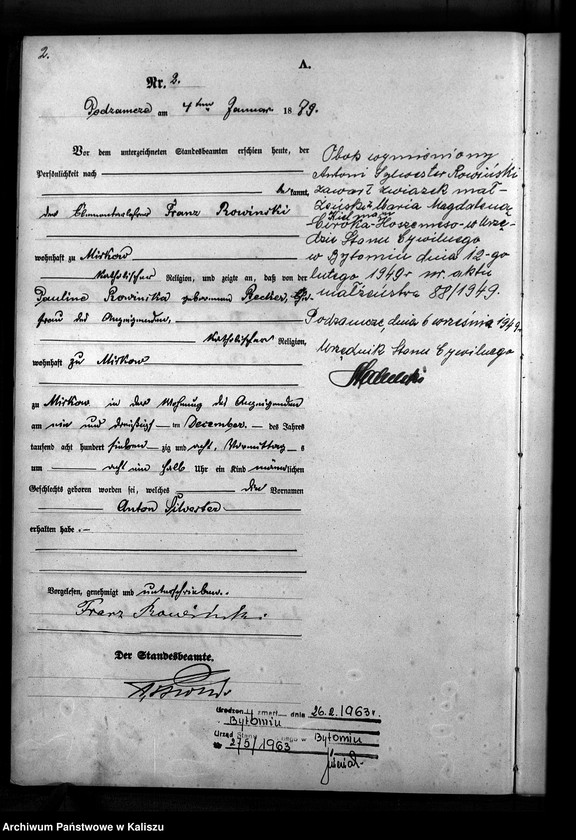 2.
A.
Nr. 2.
Podzamcze am 4ten Januar 1879.
Vor dem unterzeichneten Standesbeamten erschien heute, der
Persönlichkeit nach
kannt,
der Franz Rowinski
wohnhaft zu Mirkow
katholischer Religion, und zeigte an, daß von der
Pauline Rowinska geborenen Recker, Ehe
frau des Anzeigenden,
katholischer Religion,
wohnhaft zu Mirkow
zu Mirkow in der Wohnung des Anzeigenden
am ein und dreißigsten December des Jahres
tausend acht hundert siebenzig und acht, Vormittags
um acht ein halb Uhr ein Kind männlichen
Geschlechts geboren worden sei, welches die Vornamen
Anton Silvester
erhalten habe.
Vorgelesen, genehmigt und unterschrieben.
Franz Rowinski.
Der Standesbeamte.
Obok wymieniony
Antoni Sylwester Rowiński
zawarł związek mał-
żeński z Maria Magdalena
w Urzę-
dzie Stanu Cywilnego
w Bytomiu dnia 12-go
lutego 1949 r nr. aktu
małżeństwa 88/1949.
Podzamcze, dnia 6 września 1949
Urzędnik Stanu Cywilnego
zmarł dnia 26.2.1963 r.
Bytomiu
Urząd Stanu Cywilnego w Bytomiu
275/1963
Archiwum Państwowe w Kaliszu